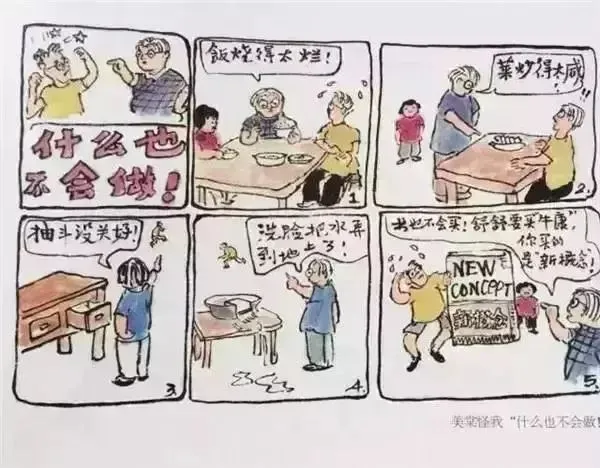 什么也
不会做!
饭烧得太烂!
1
菜炒得太咸!
2.
抽斗没关好!
3.
洗脸把水弄
到地上了!
4.
书也不会买!舒舒要买"牛康",
你买的
是"新概念!
NEW
CONCEPT
新概念
5.
美棠怪我“什么也不会做!